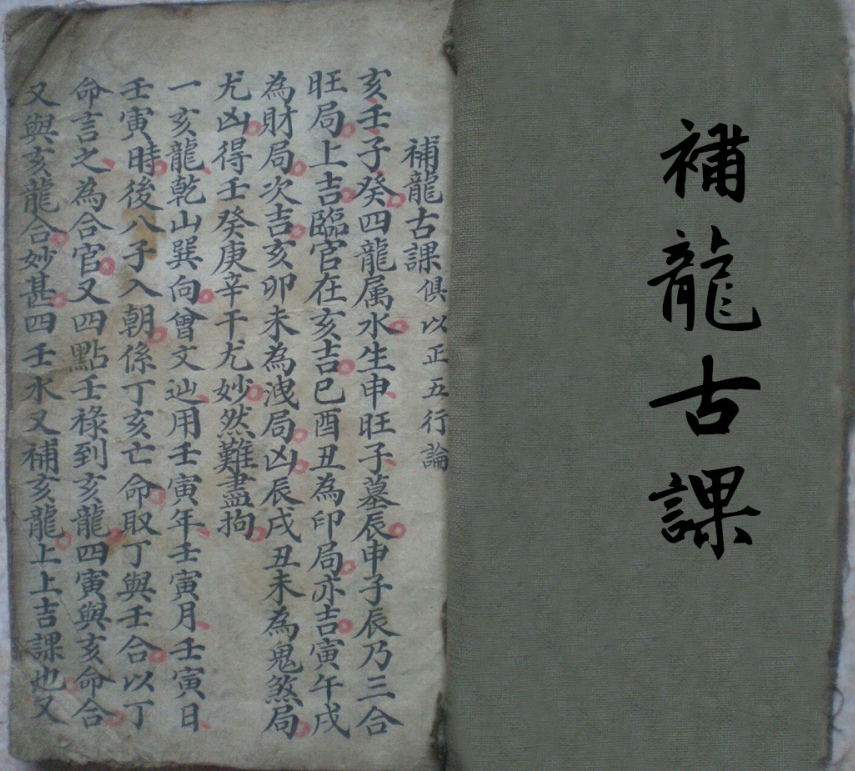 補龍古課
補龍古課 俱以正五行論
亥壬子癸四龍属水生申旺子墓辰申子辰乃三合
旺局上吉臨官在亥吉巳酉丑為印局亦吉寅午戌
為財局次吉亥卯未為洩局凶辰戌丑未為鬼煞局
尤凶得壬癸庚辛干尤妙然難盡拘
一亥龍乾山巽向曾文辿用壬寅年壬寅月壬寅日
壬寅時後八子入朝係丁亥亡命取丁與壬合以丁
命言之為合官又四點壬祿到亥龍四寅與亥命合
又與亥龍合妙甚四壬水又補亥龍上上吉課也又